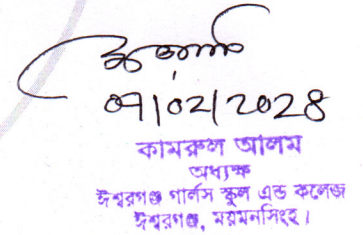 ০৭/০২/২০২৪
কামরুল আলম
অধ্যক্ষ
ঈশ্বরগঞ্জ গার্লস স্কুল এন্ড কলেজ
ঈশ্বরগঞ্জ, ময়মনসিংহ।